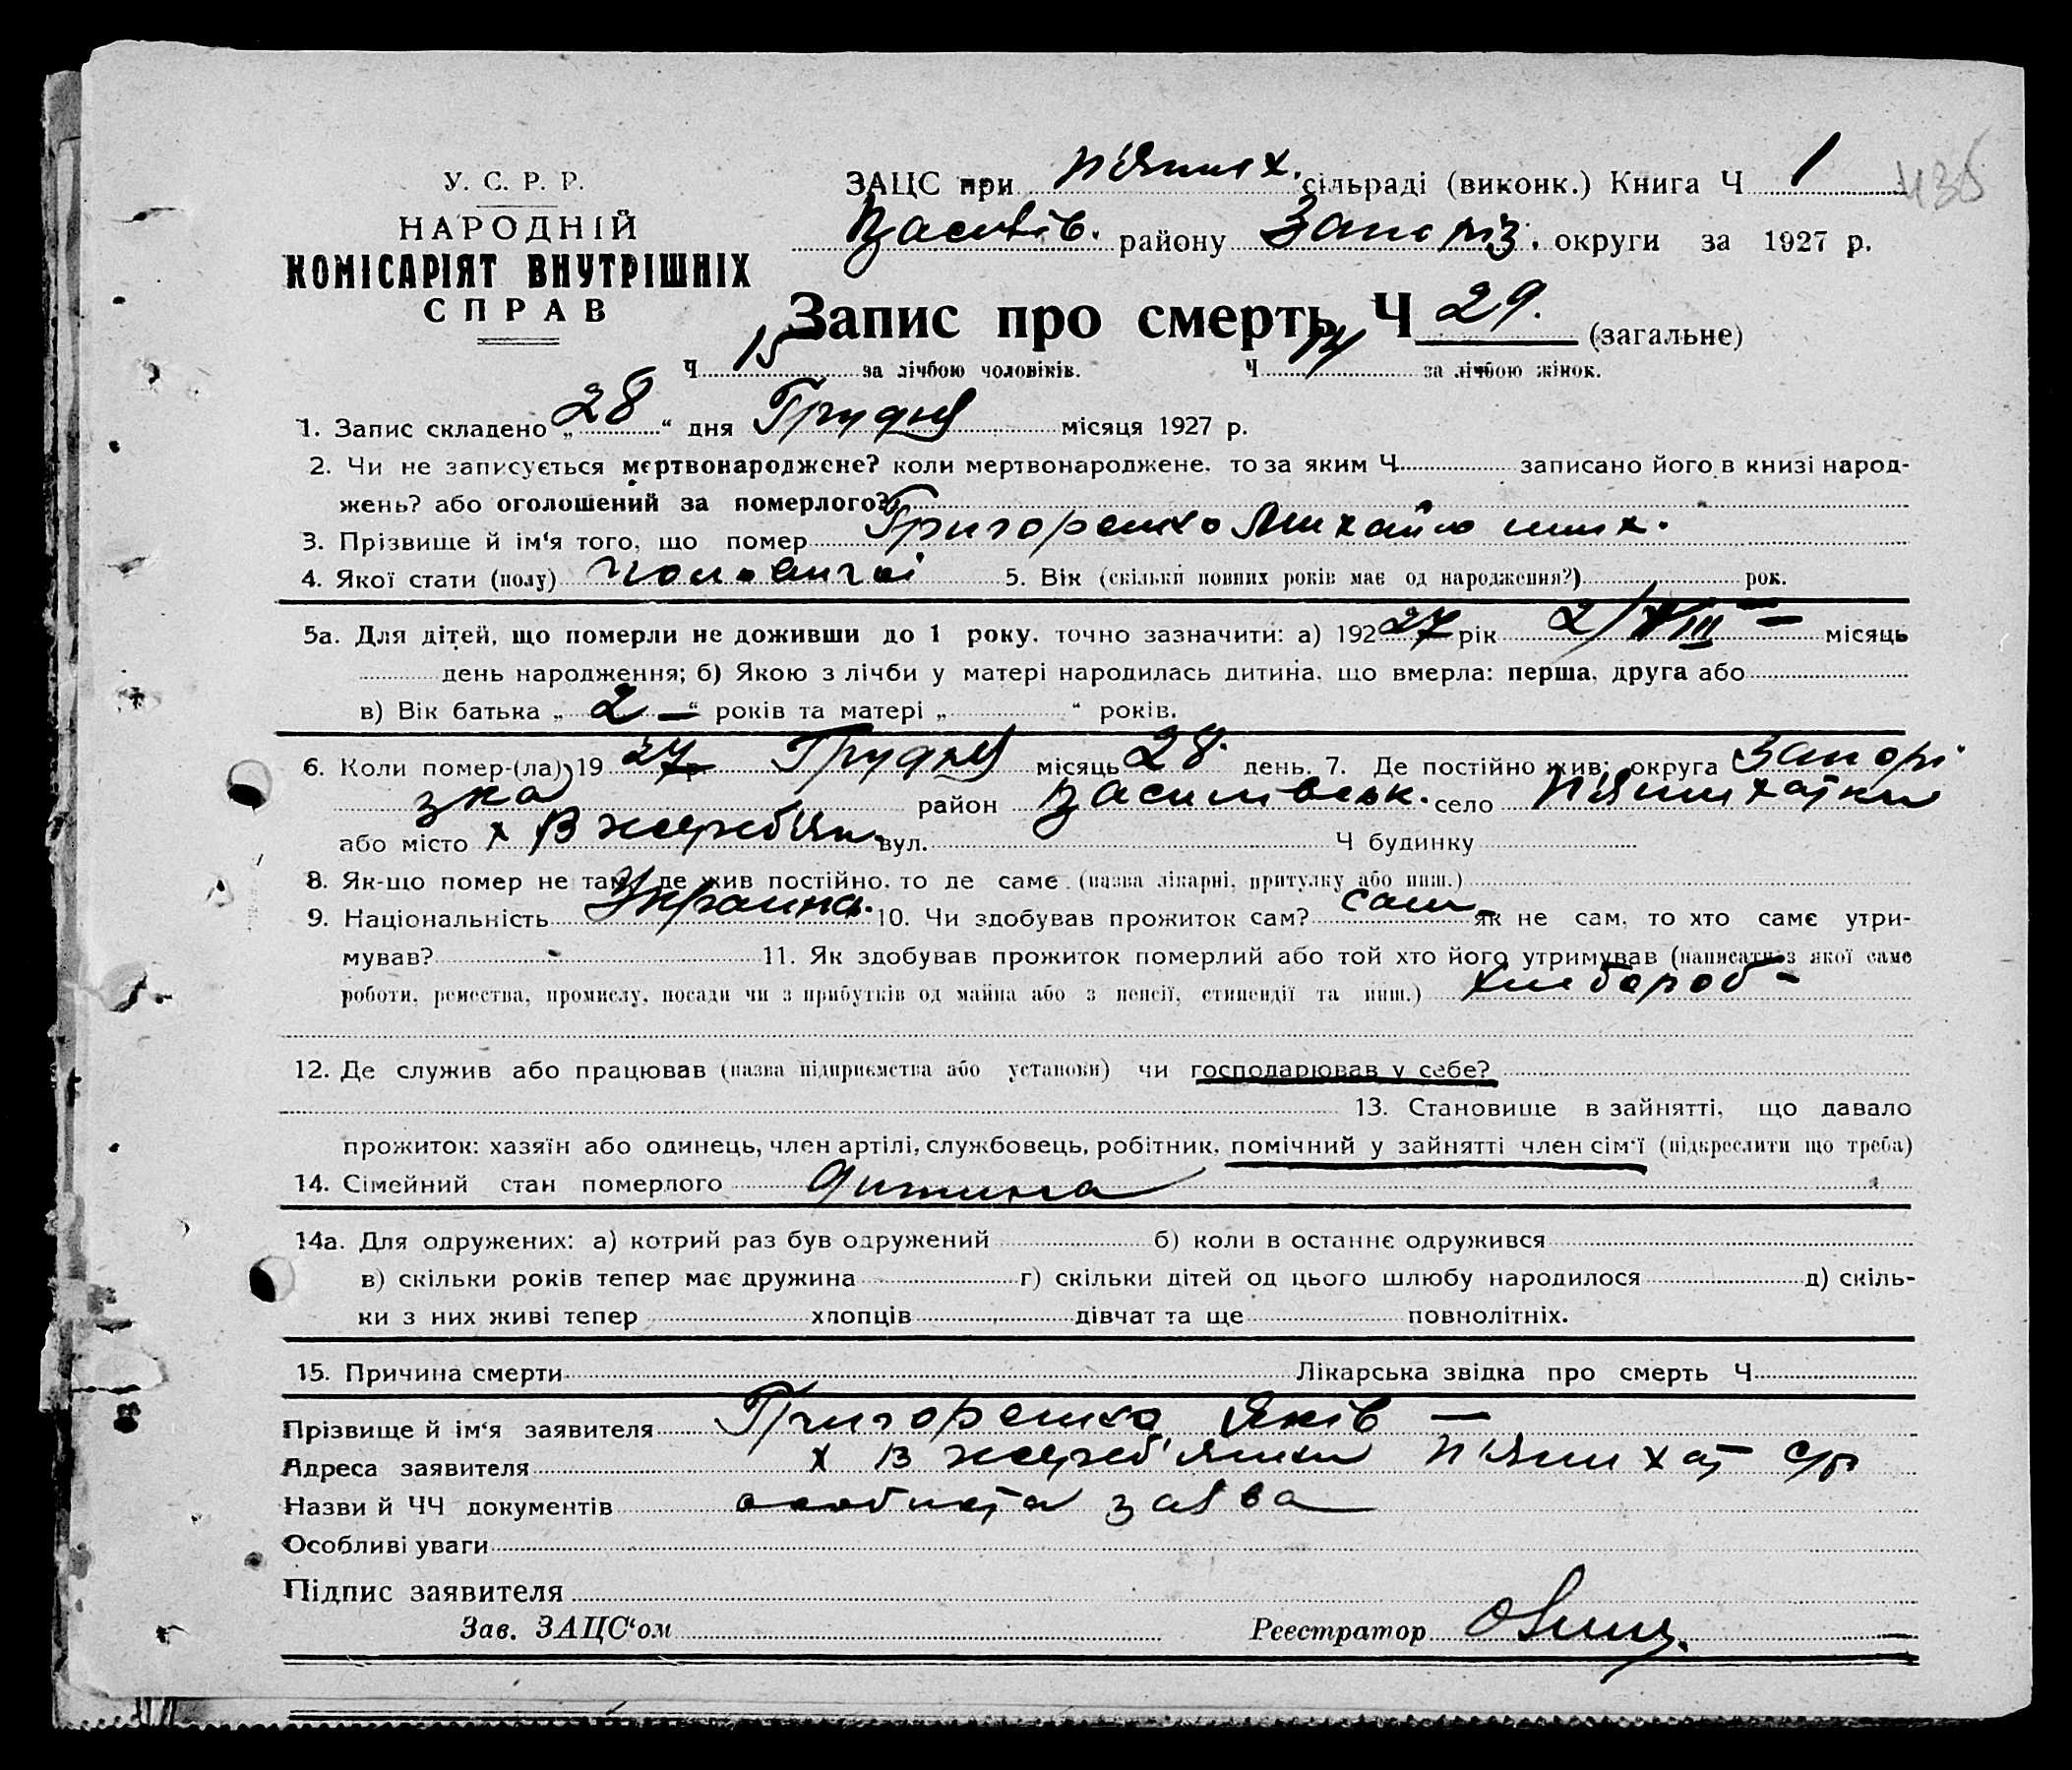 У. С. Р. Р.
НАРОДНІЙ
КОМІСАРІЯТ ВНУТРІШНІХ
СПРАВ
ЗАЦС при П'ятих. сільраді (виконк.) Книга Ч 1
Василів. району Запоріз. округи за 1927 р.
Запис про смерть Ч 29. (загальне)
Ч 15 за лічбою чоловіків. Ч 14 за лічбою жінок.
1. Запис складено „28“ дня Грудня місяця 1927 р.
2. Чи не записується мертвонароджене? коли мертвонароджене, то за яким Ч записано його в книзі народ-
жень? або оголошений за померлого?
3. Прізвище й ім'я того, що помер Григоренко Михайло
4. Якої стати (полу) 5. Вік (скільки повних років має од народження?) рок.
5а. Для дітей, що померли не доживши до 1 року, точно зазначити: а) 1927 рік 2/VIII — місяць
день народження; б) Якою з лічби у матері народилась дитина, що вмерла: перша, друга або
в) Вік батька „2 —“ років та матері „ “ років.
6. Коли помер-(ла) 1927 Грудня місяць 28 день. 7. Де постійно жив: округа Запорі
зка район Василівськ. село П'ятихатки
або місто х В жереб'ян. вул. Ч будинку
8. Як-що помер не там, де жив постійно, то де саме (назва лікарні, притулку або инш.)
9. Національність Украина. 10. Чи здобував прожиток сам? сам як не сам, то хто саме утри-
мував? 11. Як здобував прожиток померлий або той хто його утримував (написати з якої саме
роботи, ремества, промислу, посади чи з прибутків од майна або з пенсії, стипендії та инш.) хлібороб -
12. Де служив або працював (назва підприємства або установи) чи господарював у себе?
13. Становище в зайнятті, що давало
прожиток: хазяїн або одинець, член артілі, службовець, робітник, помічний у зайнятті член сім'ї (підкреслити що треба)
14. Сімейний стан померлого дитина
14а. Для одружених: а) котрий раз був одружений б) коли в останнє одружився
в) скільки років тепер має дружина г) скільки дітей од цього шлюбу народилося д) скіль-
ки з них живі тепер хлопців дівчат та ще повнолітніх.
15. Причина смерти Лікарська звідка про смерть Ч
Прізвище й ім'я заявителя Григоренко Яків —
Адреса заявителя х В жереб'янки П'ятихат с/р
Назви й ЧЧ документів особиста заява
Особливі уваги
Підпис заявителя
Зав. ЗАЦС'ом Реєстратор